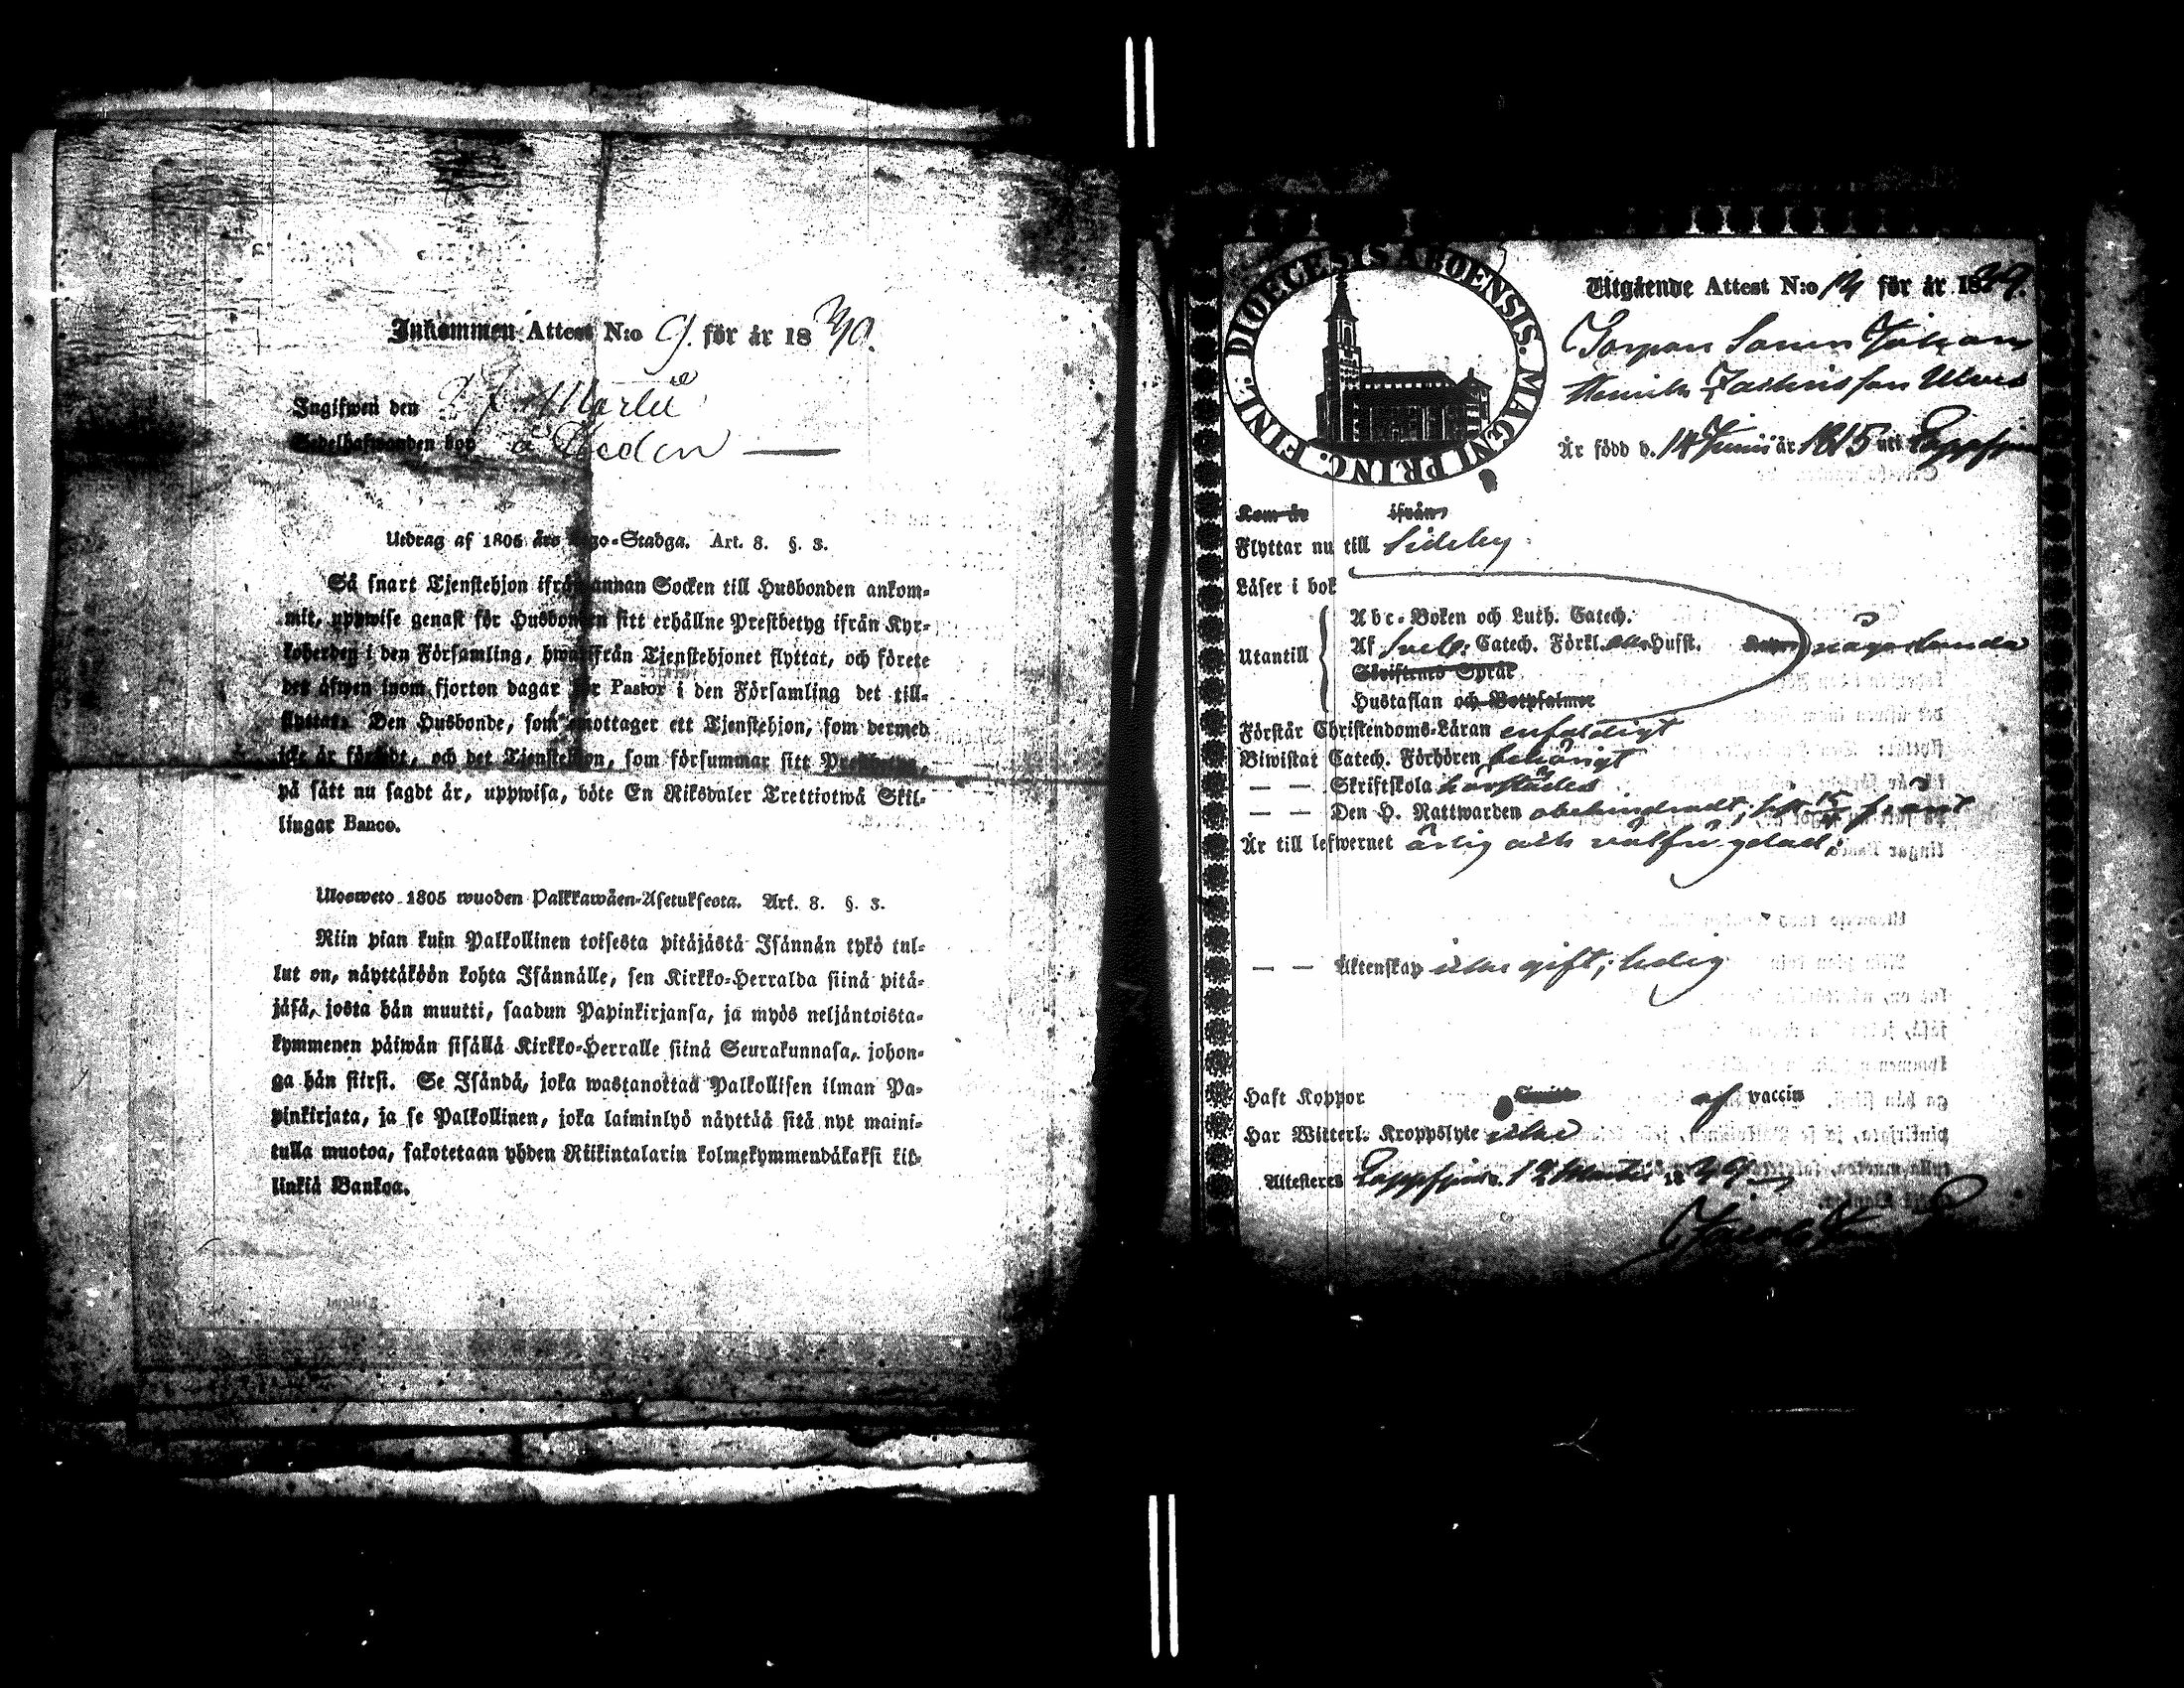 Inkommen Attest N:o 9. för år 18
Ingifwen den Martii
bor å
Utdrag af 1805 års Stadga. Art. 8. §. 3.
Så snart Tjenstehjon ifrån annan Socken till Husbonden ankom-
mit, uppwise genast för Husbonden sitt erhållne Prestbetyg ifrån Kyr-
koherden i den Församling, hwarifrån Tjenstehjonet flyttat, och förete
det äfwen inom fjorton dagar för Pastor i den Församling det till-
flyttat. Den Husbonde, som emottager ett Tjenstehjon, som dermed
icke är försedt, och det Tjenstehjon, som försummar sitt
på sätt nu sagdt är, uppwisa, böte En Riksdaler Trettiotwå Skil-
lingar Banco.
Ulosweto 1805 wuoden Palkkawäen-Asetuksesta. Art. 8. §. 3.
Niin pian kuin Palkollinen toisesta pitäjästä Isännän tykö tul-
lut on, näyttäköön kohta Isännälle, sen Kirkko-Herralda siinä pitä-
jäsä, josta hän muutti, saadun Papinkirjansa, ja myös neljäntoista-
kymmenen päiwän sisällä Kirkko-Herralle siinä Seurakunnasa, johon-
ga hän siirsi. Se Isändä, joka wastanottaa Palkollisen ilman Pa-
pinkirjata, ja se Palkollinen, joka laiminlyö näyttää sitä nyt maini-
tulla muotoa, sakotetaan yhden Riikintalarin kolmekymmendäkaksi kil-
linkiä Bankoa.
DIOECESIS ABOENSIS. MAGNI PRINC. FINL.
Utgående Attest N:o 12 för år 1839.
Sonen Johan
Henrik
Är född d. 14 Junii år 1815 uti Lappfjerd
Kom år ifrån
Flyttar nu till Sideby
Läser i bok
Utantill
Abc-Boken och Luth. Catech.
Af Sveb. Catech. Förkl. Husst. någorlunda
Skriftenes Språk
Hustaflan och Botpsalmer
Förstår Christendoms-Läran enfaldigt
Biwistat Catech. Förhören behörigt
— — Skriftskola härstädes
— — Den H. Nattwarden obehindradt,
Är till lefwernet ärlig och välfrägdad;
— — Äktenskap icke gift; ledig
Haft Koppor af vaccin
Har Witterl. Kroppslyte icke
Attesteres Lappfjerd d. 12 Martii 1839
Jacob